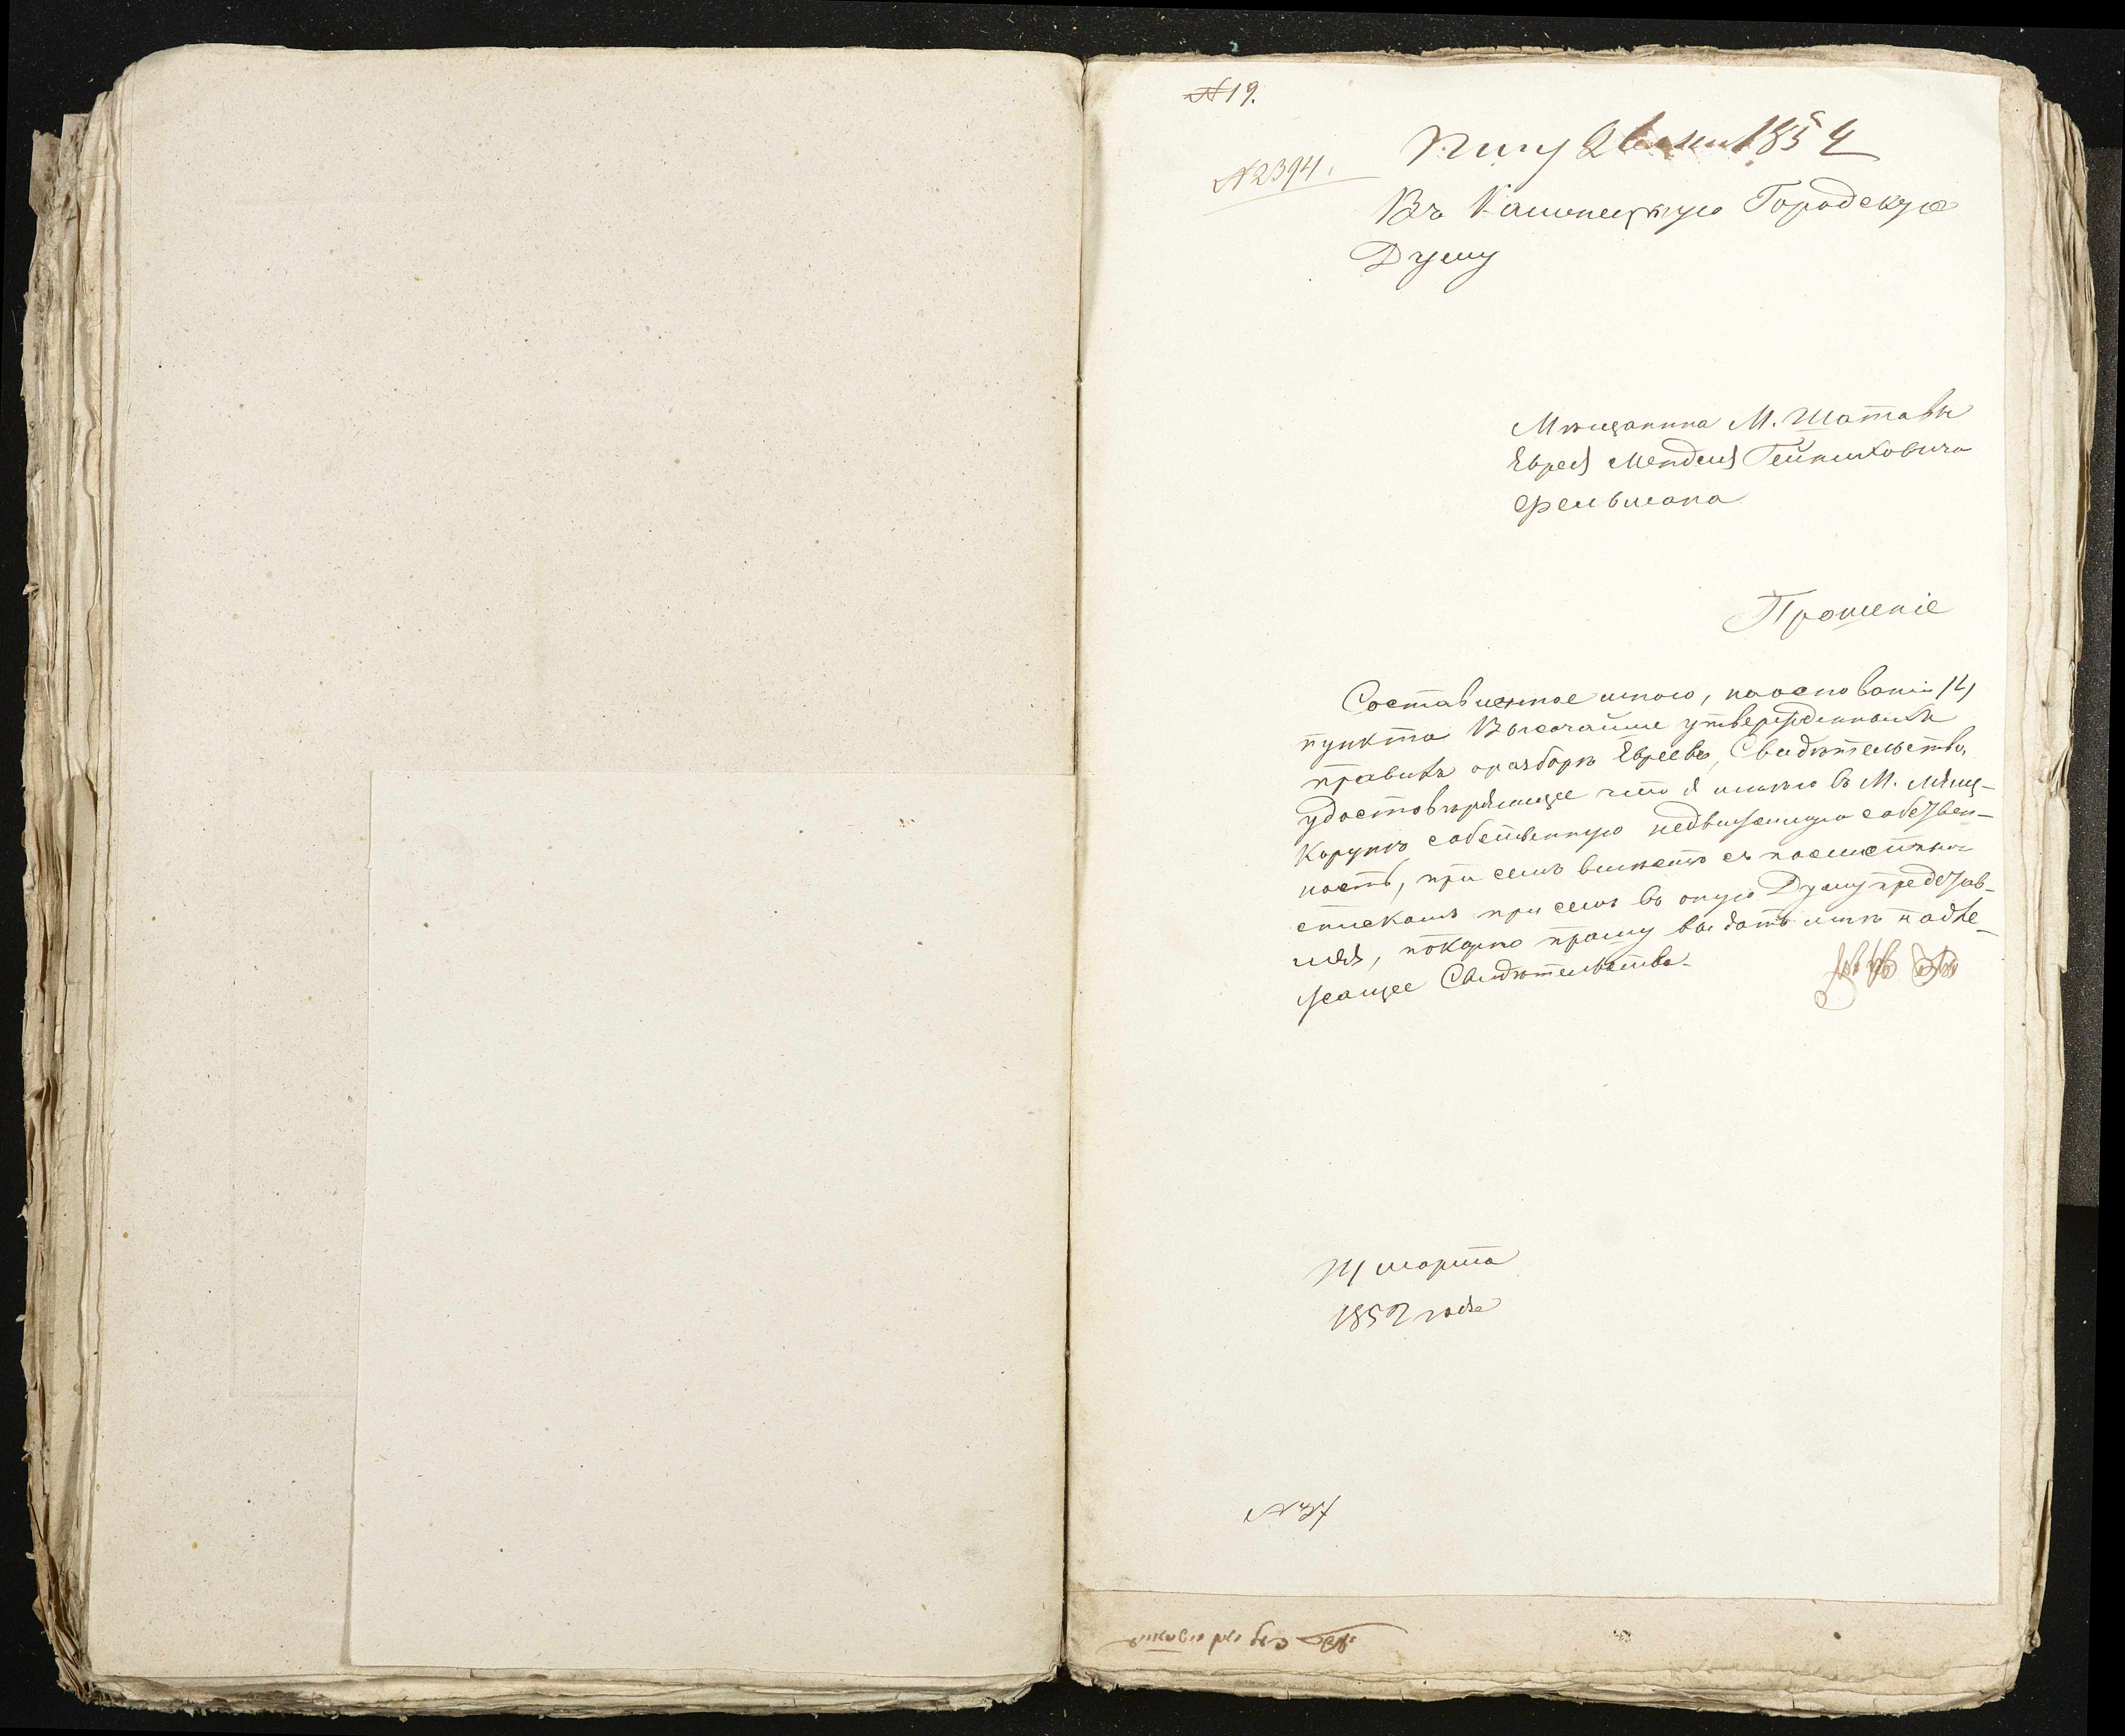 № 19.
№ 2394.
1854
Въ Каменецкую Городскую
Думу
Мѣщанина М. Шатавы
Еврея Менделя Гейниховича
Фельмана
Прошеніе
Составленное мною, на основаніи 14
пункта Высочайше утвержденныхъ
правилъ о разборѣ Евреевъ, Свидѣтельство,
удостовѣряющее что я имѣю въ М.
собственную недвижимую собствен-
ность, при семъ вмѣстѣ съ посемейнымъ
спискомъ при семъ въ оную Думу представ-
ляя, покорно прошу выдать мнѣ надле-
жащее Свидѣтельство.
марта
1852 года